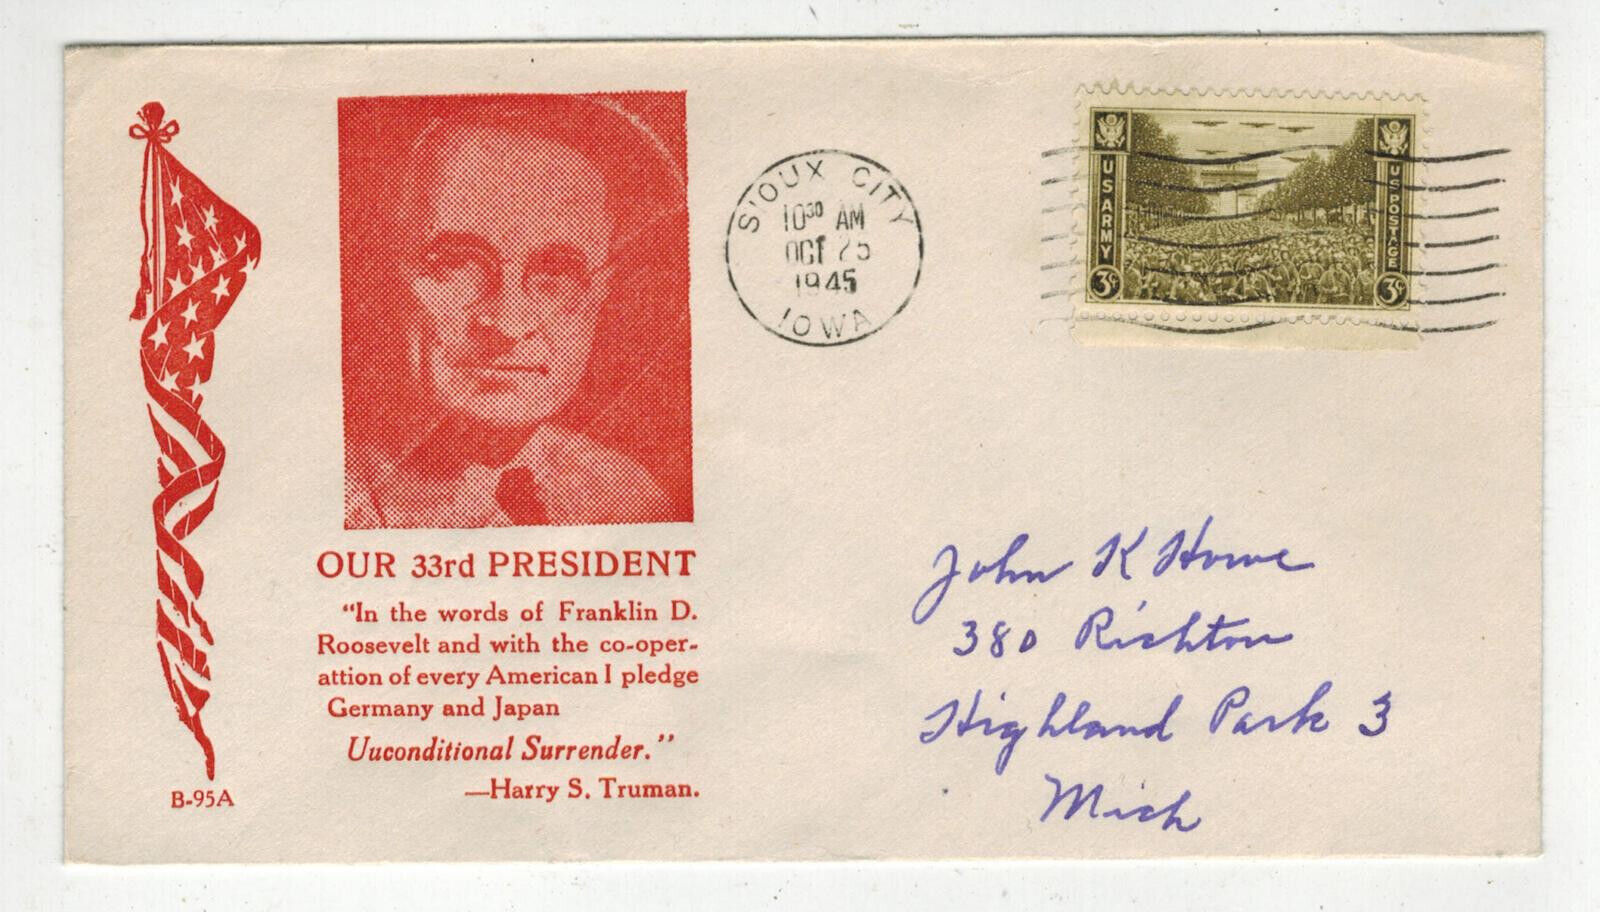 SIOUX CITY
10 30 AM
OCT 25
1945
IOWA
U S ARMY
U S POSTAGE
3¢
3¢
OUR 33rd PRESIDENT
"In the words of Franklin D.
Roosevelt and with the co-oper-
attion of every American I pledge
Germany and Japan
Uuconditional Surrender."
—Harry S. Truman.
B-95A
John K Howe
380 Richton
Highland Park 3
Mich